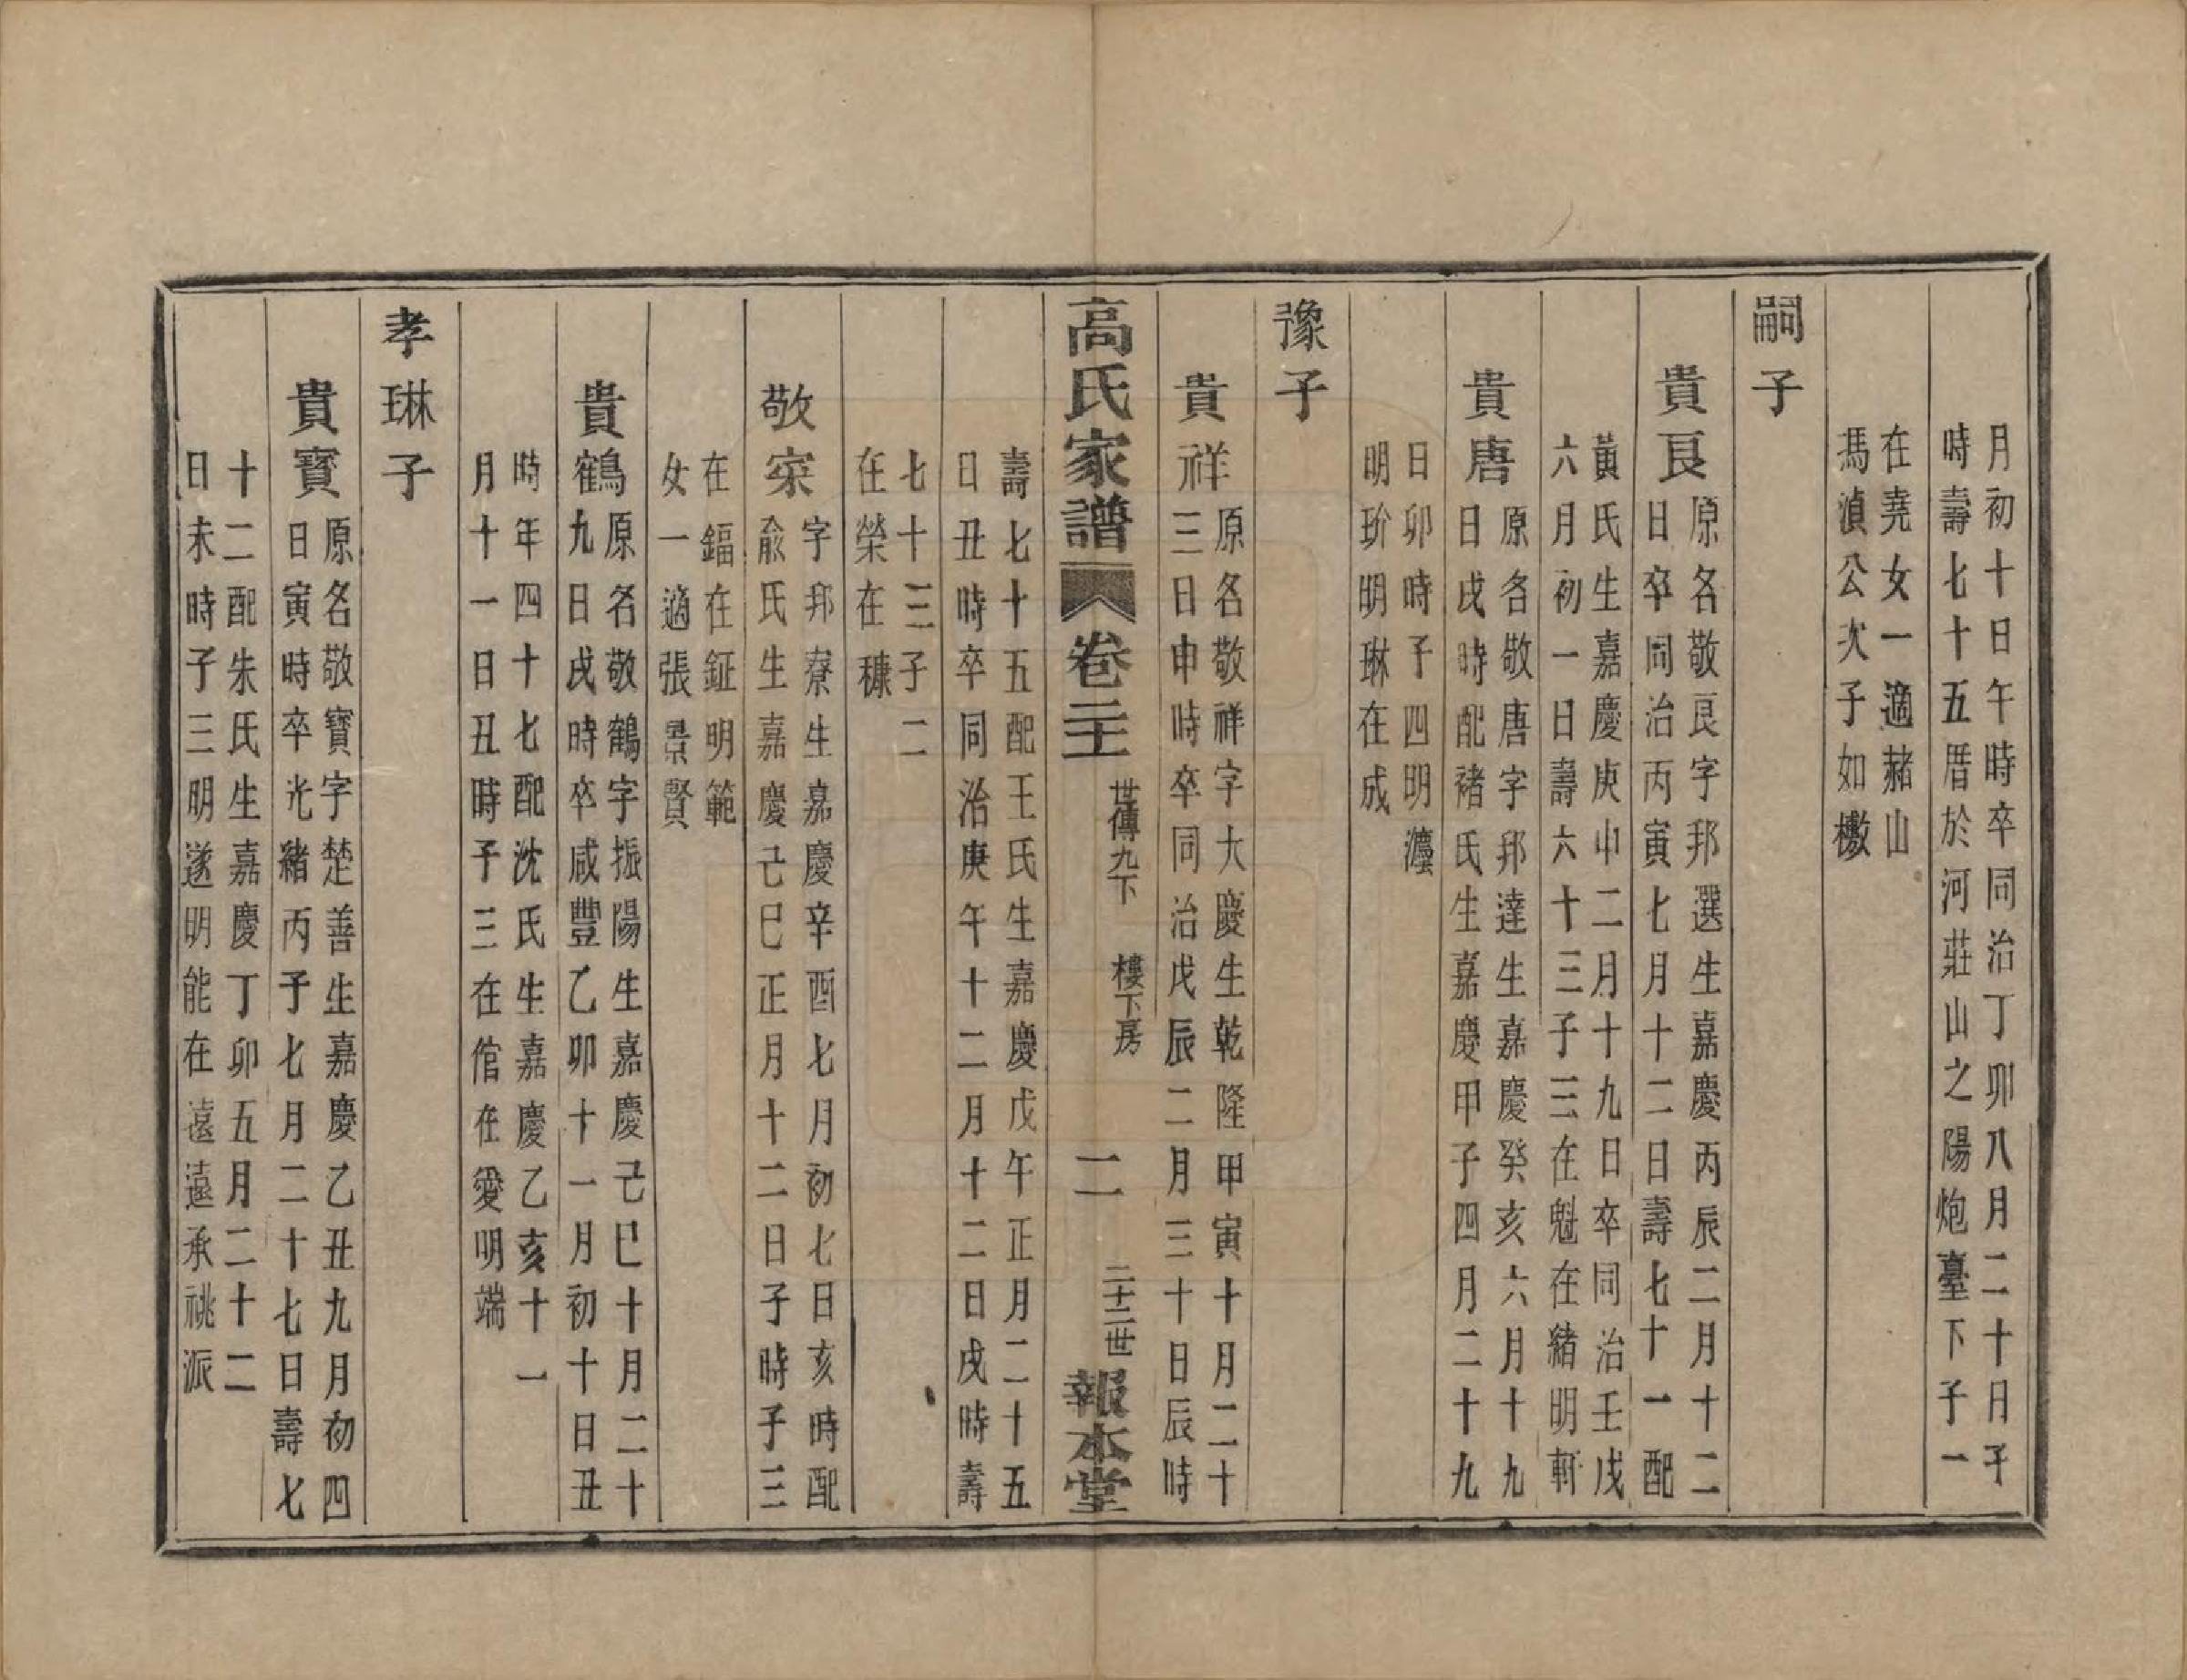 月初十日午時卒同治丁卯八月二十日子
時壽七十五厝於河莊山之陽炮臺下子一
在堯女一適赭山
馮濵公次子如檄
嗣子
貴良
原名敬良字邦選生嘉慶丙辰二月十二
日卒同治丙寅七月十二日壽七十一配
黃氏生嘉慶庚申二月十九日卒同治壬戌
六月初一日壽六十三子三在魁在緒明軒
貴唐
原名敬唐字邦達生嘉慶癸亥六月十九
日戌時配褚氏生嘉慶甲子四月二十九
日卯時子四明灋
明玠明琳在成
豫子
貴祥
原名敬祥字大慶生乾隆甲寅十月二十
三日申時卒同治戊辰二月三十日辰時
高氏家譜 卷二十 世傳九下 樓下房 二 二十二世 報本堂
壽七十五配王氏生嘉慶戊午正月二十五
日丑時卒同治庚午十二月十二日戌時壽
七十三子二
在榮在槺
敬寀
字邦寮生嘉慶辛酉七月初七日亥時配
兪氏生嘉慶己巳正月十二日子時子三
在鍢在鉦明範
女一適張景賢
貴鶴
原名敬鶴字振陽生嘉慶己巳十月二十
九日戌時卒咸豐乙卯十一月初十日丑
時年四十七配沈氏生嘉慶乙亥十一
月十一日丑時子三在倌在愛明端
孝琳子
貴寶
原名敬寶字楚善生嘉慶乙丑九月初四
日寅時卒光緒丙子七月二十七日壽七
十二配朱氏生嘉慶丁卯五月二十二
日未時子三明遂明能在遠遠承祧派